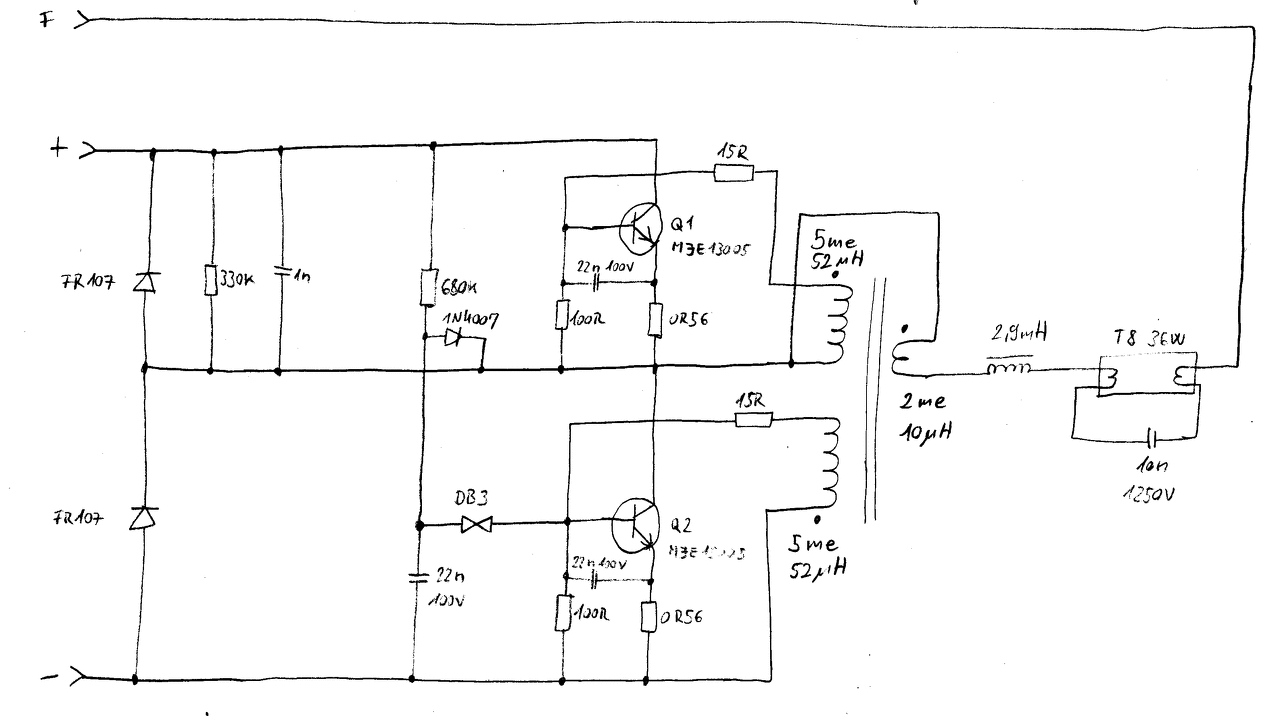 F
+
15R
Q1
MJE13005
5me
52µH
22n 100V
FR107
330K
1n
680K
1N4007
100R
0R56
2,9mH
T8 36W
15R
2me
10µH
10n
1250V
DB3
FR107
Q2
5me
52µH
22n
100V
22n 100V
100R
0R56
-